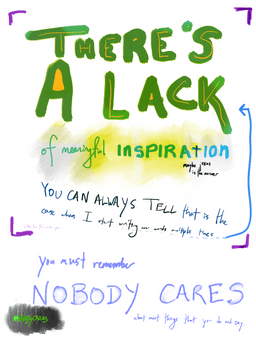 THERE'S
A LACK
of meaningful INSPIRATION
maybe jesus
is the answer
YOU CAN ALWAYS TELL that is the
case when I start writing my words multiple times
you must remember
NOBODY CARES
about most things that you do and say